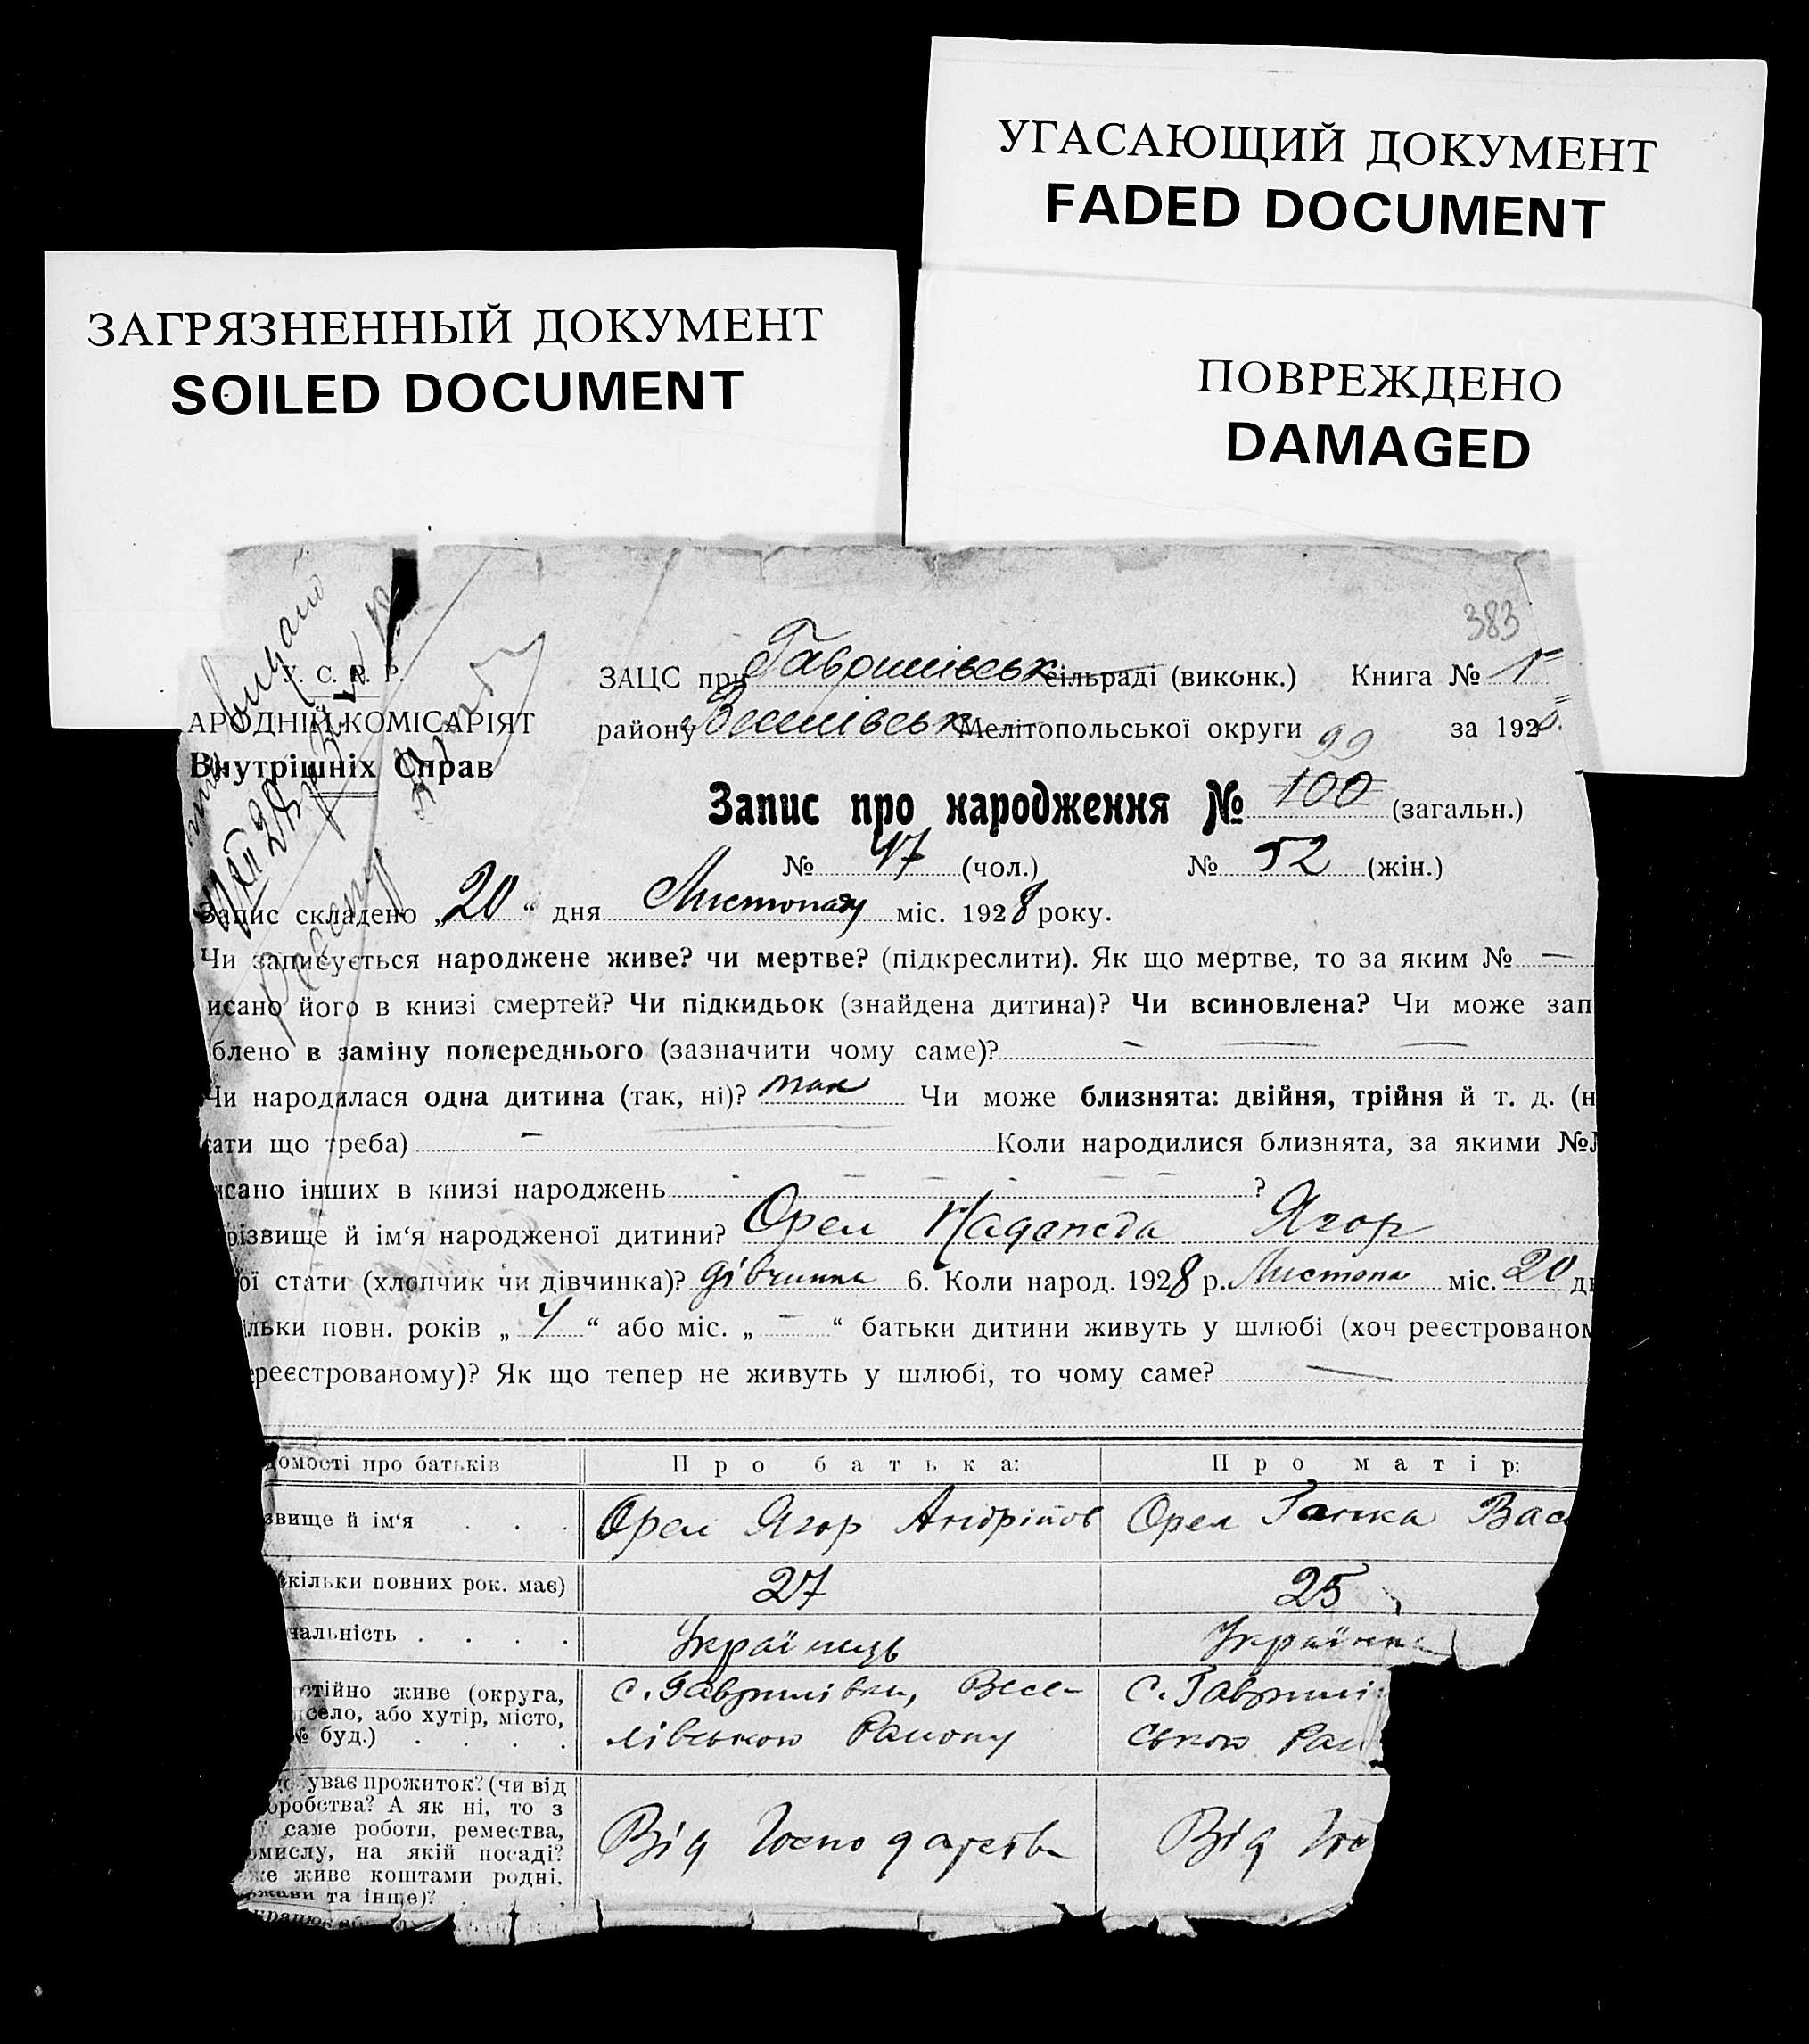 УГАСАЮЩИЙ ДОКУМЕНТ
FADED DOCUMENT
ЗАГРЯЗНЕННЫЙ ДОКУМЕНТ
SOILED DOCUMENT
ПОВРЕЖДЕНО
DAMAGED
383
У. С. Р. Р.
АРОДНІЙ КОМІСАРІЯТ
Внутрішніх Справ
ЗАЦС при Гаврилівськ сільраді (виконк.) Книга № 1
району Веселівськ Мелітопольської округи за 192
99
Запис про народження № 100 (загальн.)
№ 47 (чол.) № 52 (жін.)
Запис складено „20“ дня Листопаду міс. 1928 року.
Чи записується народжене живе? чи мертве? (підкреслити). Як що мертве, то за яким № —
исано його в книзі смертей? Чи підкидьок (знайдена дитина)? Чи всиновлена? Чи може зап
блено в заміну попереднього (зазначити чому саме)? — — —
Чи народилася одна дитина (так, ні)? так Чи може близнята: двійня, трійня й т. д. (н
сати що треба) — Коли народилися близнята, за якими №№
исано інших в книзі народжень ?
різвище й ім‘я народженої дитини? Орел Надежда Ягор
ої стати (хлопчик чи дівчинка)? дівчинка 6. Коли народ. 1928 р. Листопа міс. 20 дн
ільки повн. років „4“ або міс. „—“ батьки дитини живуть у шлюбі (хоч реєстрованом
ереєстрованому)? Як що тепер не живуть у шлюбі, то чому саме? —
домості про батьків Про батька: Про матір:
звище й ім‘я . . . Орел Ягор Андрійов Орел Ганка Вас
скільки повних рок. має) 27 25
нальність . . . . Українець Українка
стійно живе (округа, с. Гаврилівки, Весе- с. Гаврилі
село, або хутір, місто, лівського Району ського Рай
№ буд.) . . . .
буває прожиток? (чи від
оробства? А як ні, то з
саме роботи, ремества, Від Господарства Від Гос
омислу, на якій посаді?
же живе коштами родні,
ржави та інще)? . . .